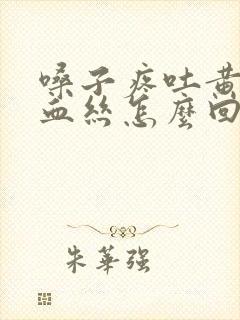 嗓子疼吐黄
血丝怎麼回
朱華強